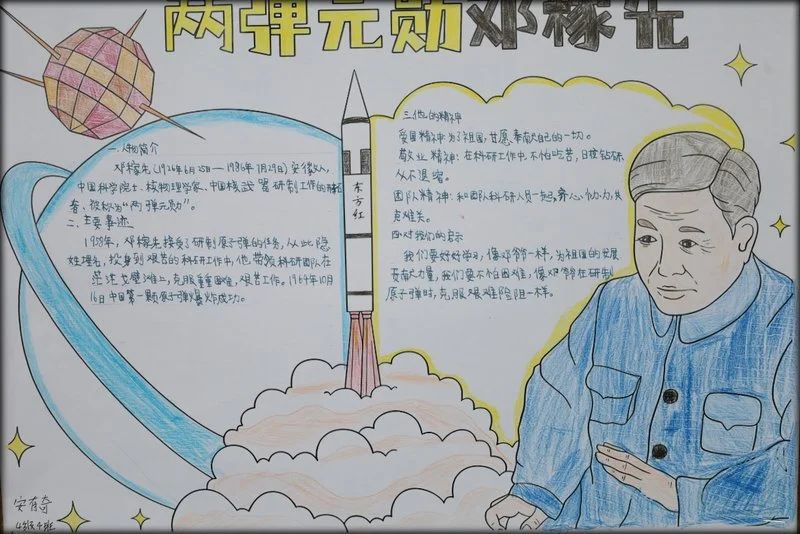 两弹元勋邓稼先
一、人物简介
邓稼先(1924年6月25日—1986年7月29日)安徽人,
中国科学院士、核物理学家、中国核武器研制工作的
者、被称为"两弹元勋"。
二、主要事迹
1958年,邓稼先接受了研制原子弹的任务,从此隐
姓埋名,投身到艰苦的科研工作中,他带领科研团队在
茫茫戈壁滩上,克服重重困难,艰苦工作,1964年10月
16日中国第一颗原子弹爆炸成功。
东方红
三他的精神
爱国精神:为了祖国,甘愿奉献自己的一切。
敬业精神:在科研工作中,不怕吃苦,日夜钻研,
从不退缩。
团队精神:和团队科研人员一起,齐心协力,共
克难关。
四对我们的启示
我们要好好学习,像邓爷爷一样,为祖国的发展
贡献力量,我们要不怕困难,像邓爷爷在研制
原子弹时,克服艰难险阻一样。
安有奇
4级4班